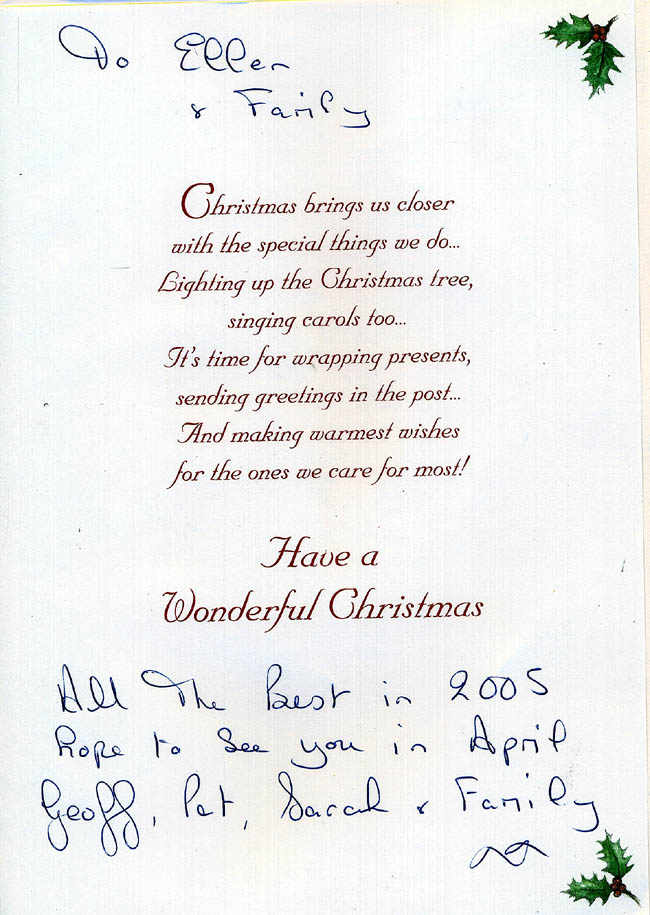 To Ellen
& Family
Christmas brings us closer
with the special things we do...
Lighting up the Christmas tree,
singing carols too...
It's time for wrapping presents,
sending greetings in the post...
And making warmest wishes
for the ones we care for most!
Have a
Wonderful Christmas
All The Best in 2005
hope to see you in April
Geoff, Pat, Sarah & Family